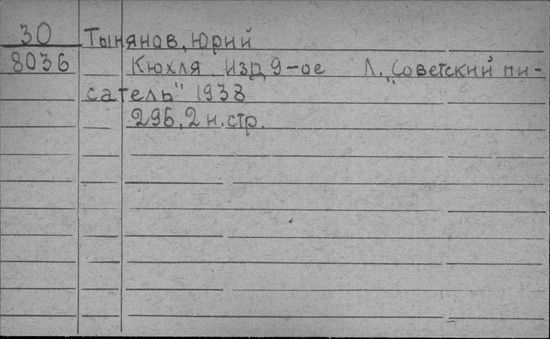 30 Тынянов, Юрий
8036 Кюхля. Изд 9-ое Л. „Советский пи-
сатель" 1938
296, 2 н. стр.